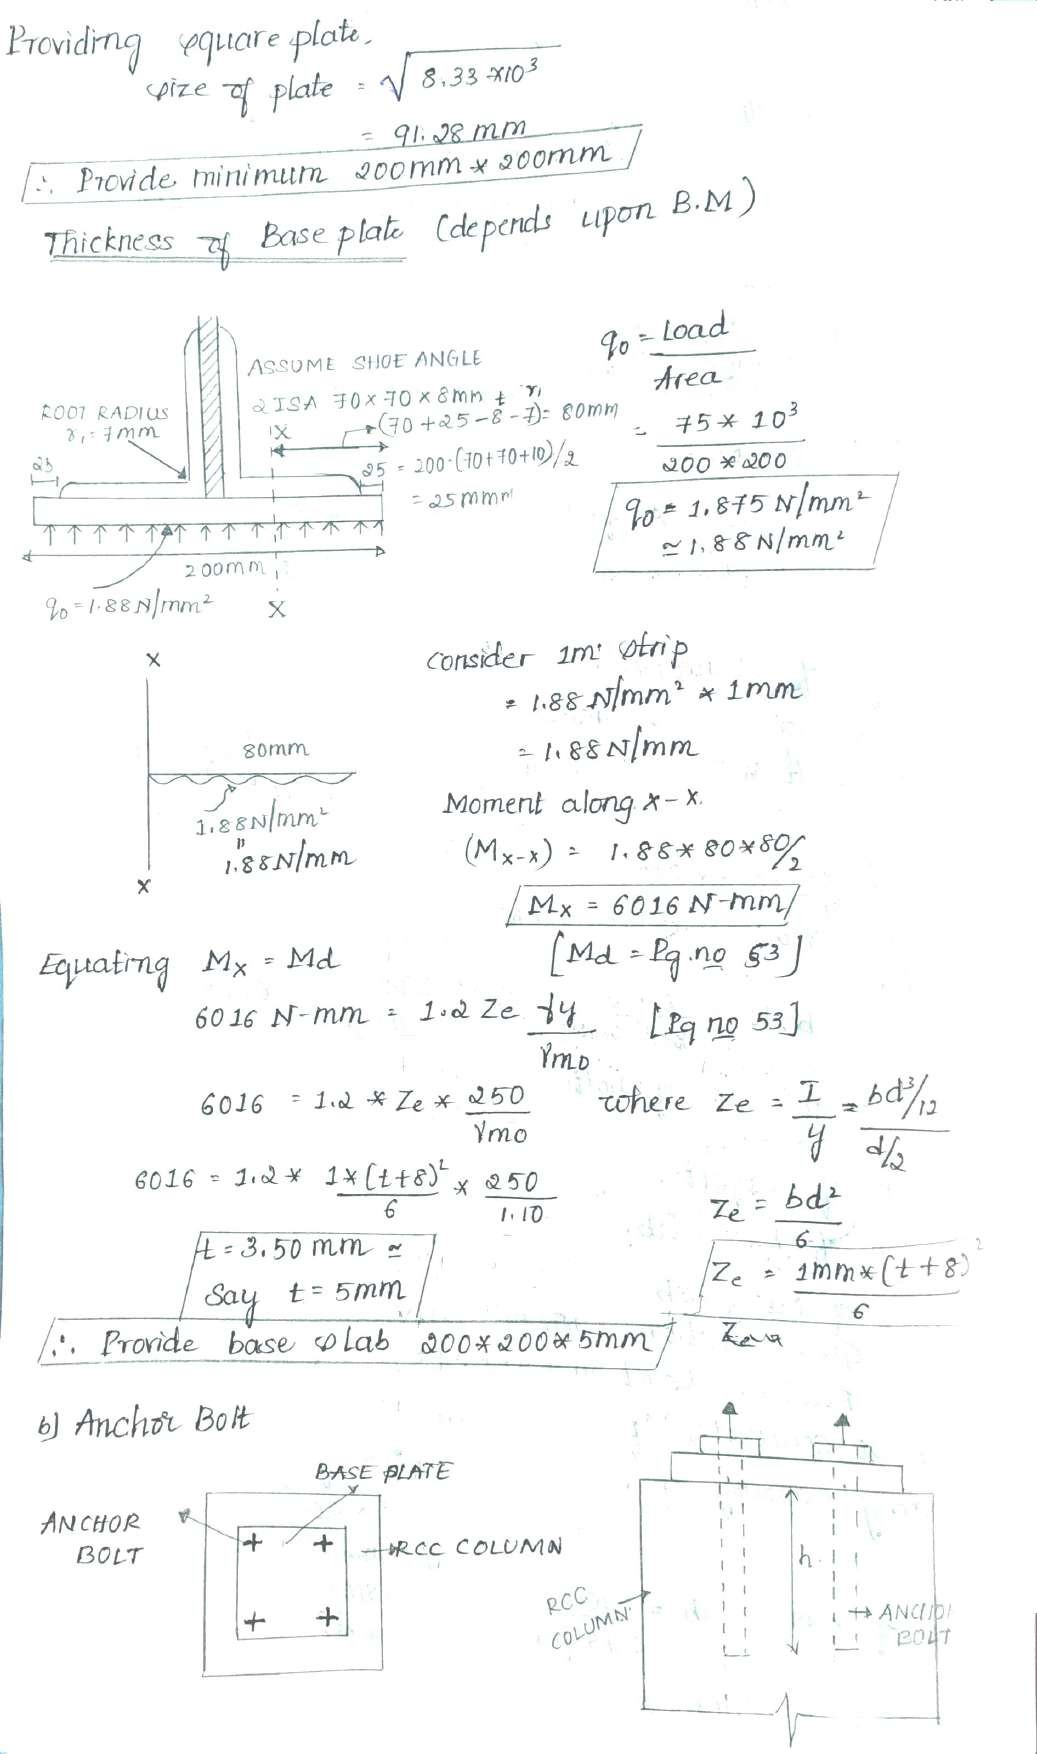 Providing square plate.
size of plate = √8.33*10³
= 91.28 mm
∴ Provide minimum 200mm * 200mm
Thickness of Base plate (depends upon B.M)
ASSUME SHOE ANGLE
2 ISA 70 x 70 x 8mm & r₁
(70+25-8-7) = 80mm
ROOT RADIUS
r₁ = 7mm
X
25
25 = 200-(70+70+10)/2
= 25mm
200mm
q₀ = 1.88 N/mm²
X
q₀ = Load
Area
= 75 * 10³
200 * 200
q₀ = 1.875 N/mm²
≃ 1.88 N/mm²
X
80mm
1.88N/mm²
"
1.88N/mm
X
Consider 1m strip
= 1.88 N/mm² * 1mm
= 1.88 N/mm
Moment along x-x.
(Mx-x) = 1.88 * 80 * 80/2
Mx = 6016 N-mm
Equating Mx = Md [Md = Pg.no 53]
6016 N-mm = 1.2 Ze fy [Pg no 53]
γmo
6016 = 1.2 * Ze * 250
γmo
where Ze = I = bd³/12
y d/2
6016 = 1.2 * 1*(t+8)² * 250
6 1.10
Ze = bd²
6
t = 3.50 mm ≃
Say t = 5mm
Ze = 1mm*(t+8)²
6
∴ Provide base slab 200*200*5mm
b) Anchor Bolt
BASE PLATE
ANCHOR
BOLT
RCC COLUMN
h
RCC
COLUMN
ANCHOR
BOLT